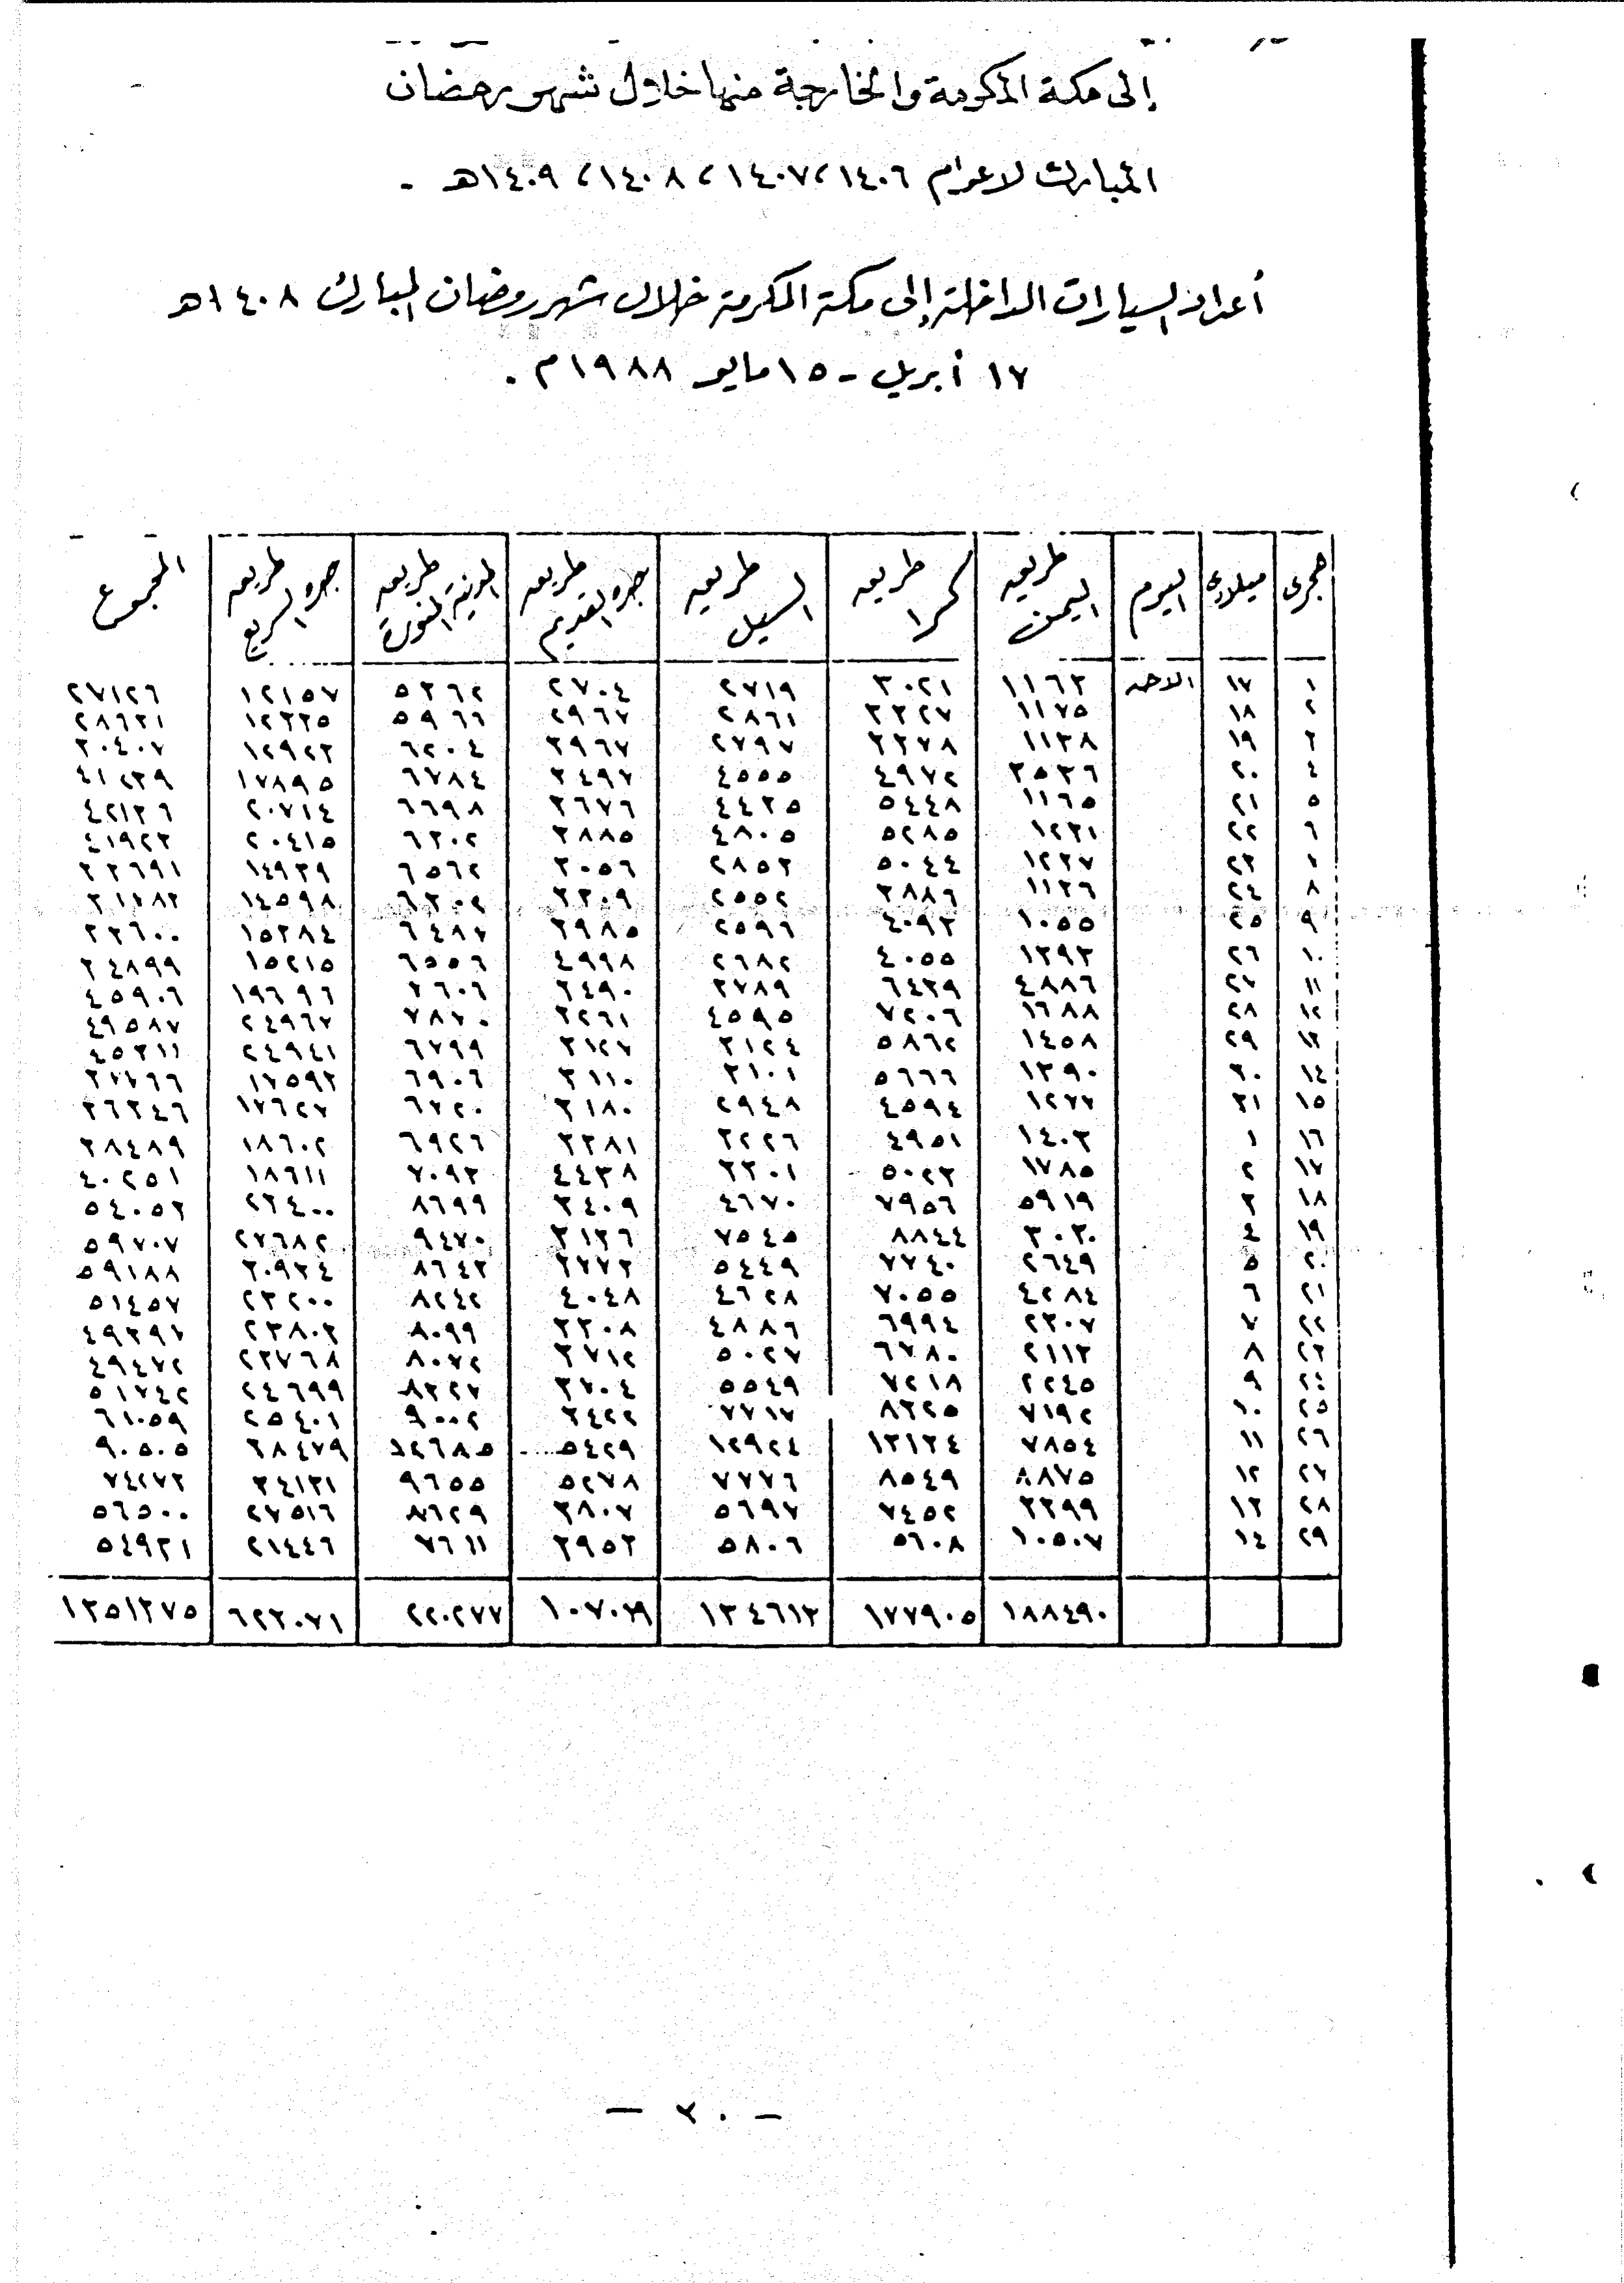 إلى مكة المكرمة والخارجة منها خلال شهر رمضان
المبارك لاعوام ١٤٠٦، ١٤٠٧، ١٤٠٨، ١٤٠٩هـ .
أعداد السيارات الداخلة إلى مكة المكرمة خلال شهر رمضان المبارك ١٤٠٨هـ
١٧ أبريل - ١٥ مايو ١٩٨٨م .
هجرى ميلادى اليوم طريق اليمن طريق كرا طريق السيل طريق جده القديم طريق المدينة المنورة طريق جده السريع المجموع
١ ١٧ الاحد ١١٦٣ ٣٠٢١ ٢٧١٩ ٢٧٠٤ ٥٣٦٢ ١٢١٥٧ ٢٧١٢٦
٢ ١٨ ١١٧٥ ٣٣٢٧ ٢٨٦١ ٢٩٦٧ ٥٩٦٦ ١٢٣٣٥ ٢٨٦٣١
٣ ١٩ ١١٣٨ ٣٣٧٨ ٢٧٩٧ ٣٩٦٧ ٦٢٠٤ ١٢٩٢٣ ٣٠٤٠٧
٤ ٢٠ ٣٥٣٦ ٤٩٧٢ ٤٥٥٥ ٣٤٩٧ ٦٧٨٤ ١٧٨٩٥ ٤١٢٣٩
٥ ٢١ ١١٦٥ ٥٤٤٨ ٤٤٣٥ ٣٦٧٦ ٦٦٩٨ ٢٠٧١٤ ٤٢١٣٦
٦ ٢٢ ١٢٣١ ٥٢٨٥ ٤٨٠٥ ٣٨٨٥ ٦٣٠٢ ٢٠٤١٥ ٤١٩٢٣
٧ ٢٣ ١٢٣٧ ٥٠٤٤ ٢٨٥٣ ٣٠٥٦ ٦٥٦٢ ١٤٩٣٩ ٣٣٦٩١
٨ ٢٤ ١١٣٦ ٣٨٨٦ ٢٥٥٢ ٣٣٠٩ ٦٣٠٢ ١٤٥٩٨ ٣١٧٨٣
٩ ٢٥ ١٠٥٥ ٤٠٩٣ ٢٥٩٦ ٣٩٨٥ ٦٤٨٧ ١٥٣٨٤ ٣٣٦٠٠
١٠ ٢٦ ١٣٩٣ ٤٠٥٥ ٢٦٨٢ ٤٩٩٨ ٦٥٥٦ ١٥٢١٥ ٣٤٨٩٩
١١ ٢٧ ٤٨٨٦ ٦٤٣٩ ٣٧٨٩ ٣٤٩٠ ٧٦٠٦ ١٩٦٩٦ ٤٥٩٠٦
١٢ ٢٨ ١٦٨٨ ٧٢٠٦ ٤٥٩٥ ٣٢٦١ ٧٨٧٠ ٢٤٩٦٧ ٤٩٥٨٧
١٣ ٢٩ ١٤٥٨ ٥٨٦٢ ٣١٢٤ ٣١٢٧ ٦٧٩٩ ٢٤٩٤١ ٤٥٣١١
١٤ ٣٠ ١٣٩٠ ٥٦٦٦ ٣١٠١ ٣١١٠ ٦٩٠٦ ١٧٥٩٣ ٣٧٧٦٦
١٥ ٣١ ١٢٧٧ ٤٥٩٤ ٢٩٤٨ ٣١٨٠ ٦٧٢٠ ١٧٦٢٧ ٣٦٣٤٦
١٦ ١ ١٤٠٣ ٤٩٥١ ٣٢٢٦ ٣٣٨١ ٦٩٢٦ ١٨٦٠٢ ٣٨٤٨٩
١٧ ٢ ١٧٨٥ ٥٠٢٣ ٣٣٠١ ٤٤٣٨ ٧٠٩٣ ١٨٦١١ ٤٠٢٥١
١٨ ٣ ٥٩١٩ ٧٩٥٦ ٤٦٧٠ ٣٤٠٩ ٨٦٩٩ ٢٣٤٠٠ ٥٤٠٥٣
١٩ ٤ ٣٠٣٠ ٨٨٤٤ ٧٥٤٥ ٣١٣٦ ٩٤٧٠ ٢٧٦٨٢ ٥٩٧٠٧
٢٠ ٥ ٢٦٤٩ ٧٧٤٠ ٥٤٤٩ ٣٧٧٣ ٨٦٤٣ ٣٠٩٣٤ ٥٩١٨٨
٢١ ٦ ٤٢٨٤ ٧٠٥٥ ٤٦٢٨ ٤٠٤٨ ٨٢٤٢ ٢٣٢٠٠ ٥١٤٥٧
٢٢ ٧ ٢٣٠٧ ٦٩٩٤ ٤٨٨٦ ٣٣٠٨ ٨٠٩٩ ٢٣٨٠٣ ٤٩٣٩٧
٢٣ ٨ ٢١١٣ ٦٧٨٠ ٥٠٢٧ ٣٧١٢ ٨٠٧٢ ٢٣٧٦٨ ٤٩٤٧٢
٢٤ ٩ ٢٢٤٥ ٧٢١٨ ٥٥٤٩ ٣٧٠٤ ٨٣٢٧ ٢٤٦٩٩ ٥١٧٤٢
٢٥ ١٠ ٧١٩٢ ٨٣٢٥ ٧٧١٧ ٣٤٢٢ ٩٠٠٢ ٢٥٤٠١ ٦١٠٥٩
٢٦ ١١ ٧٨٥٤ ١٣١٣٤ ١٢٩٢٤ ٥٤٢٩ ١٢٦٨٥ ٣٨٤٧٩ ٩٠٥٠٥
٢٧ ١٢ ٨٨٧٥ ٨٥٤٩ ٧٧٧٦ ٥٢٧٨ ٩٦٥٥ ٣٤١٣١ ٧٤٢٧٣
٢٨ ١٣ ٣٣٩٩ ٧٤٥٢ ٥٦٩٧ ٣٨٠٧ ٨٦٢٩ ٢٧٥١٦ ٥٦٥٠٠
٢٩ ١٤ ١٠٥٠٧ ٥٦٠٨ ٥٨٠٦ ٣٩٥٣ ٧٦١١ ٢١٤٤٦ ٥٤٩٣١
١٨٨٤٩٠ ١٧٧٩٠٥ ١٣٤٦١٣ ١٠٧٠٢٩ ٢٢٠٢٧٧ ٦٢٣٠٧١ ١٣٥١٣٧٥
- ٢٠ -